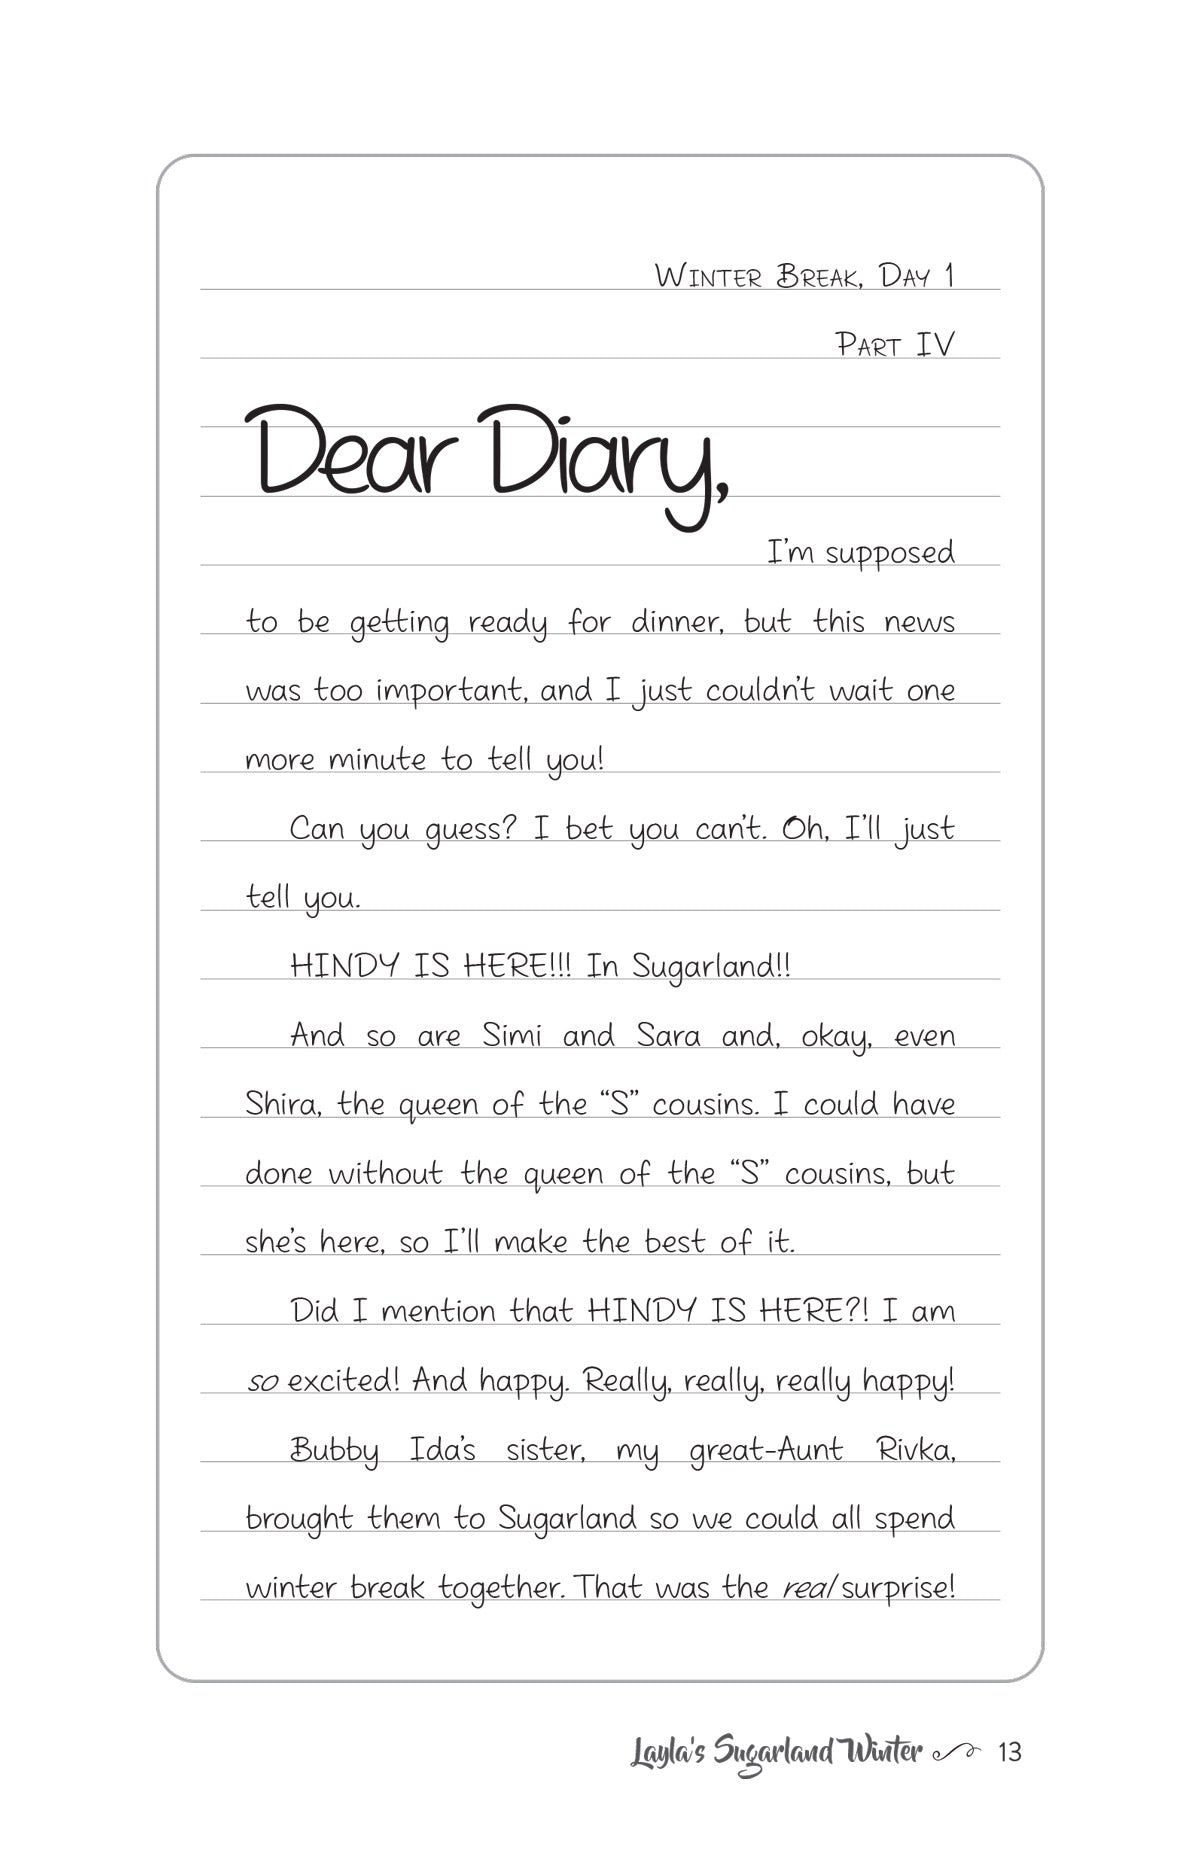 Winter Break, Day 1
Part IV
Dear Diary,
I'm supposed
to be getting ready for dinner, but this news
was too important, and I just couldn't wait one
more minute to tell you!
Can you guess? I bet you can't. Oh, I'll just
tell you.
HINDY IS HERE!!! In Sugarland!!
And so are Simi and Sara and, okay, even
Shira, the queen of the “S” cousins. I could have
done without the queen of the “S” cousins, but
she's here, so I'll make the best of it.
Did I mention that HINDY IS HERE?! I am
so excited! And happy. Really, really, really happy!
Bubby Ida's sister, my great-Aunt Rivka,
brought them to Sugarland so we could all spend
winter break together. That was the real surprise!
Layla's Sugarland Winter 13